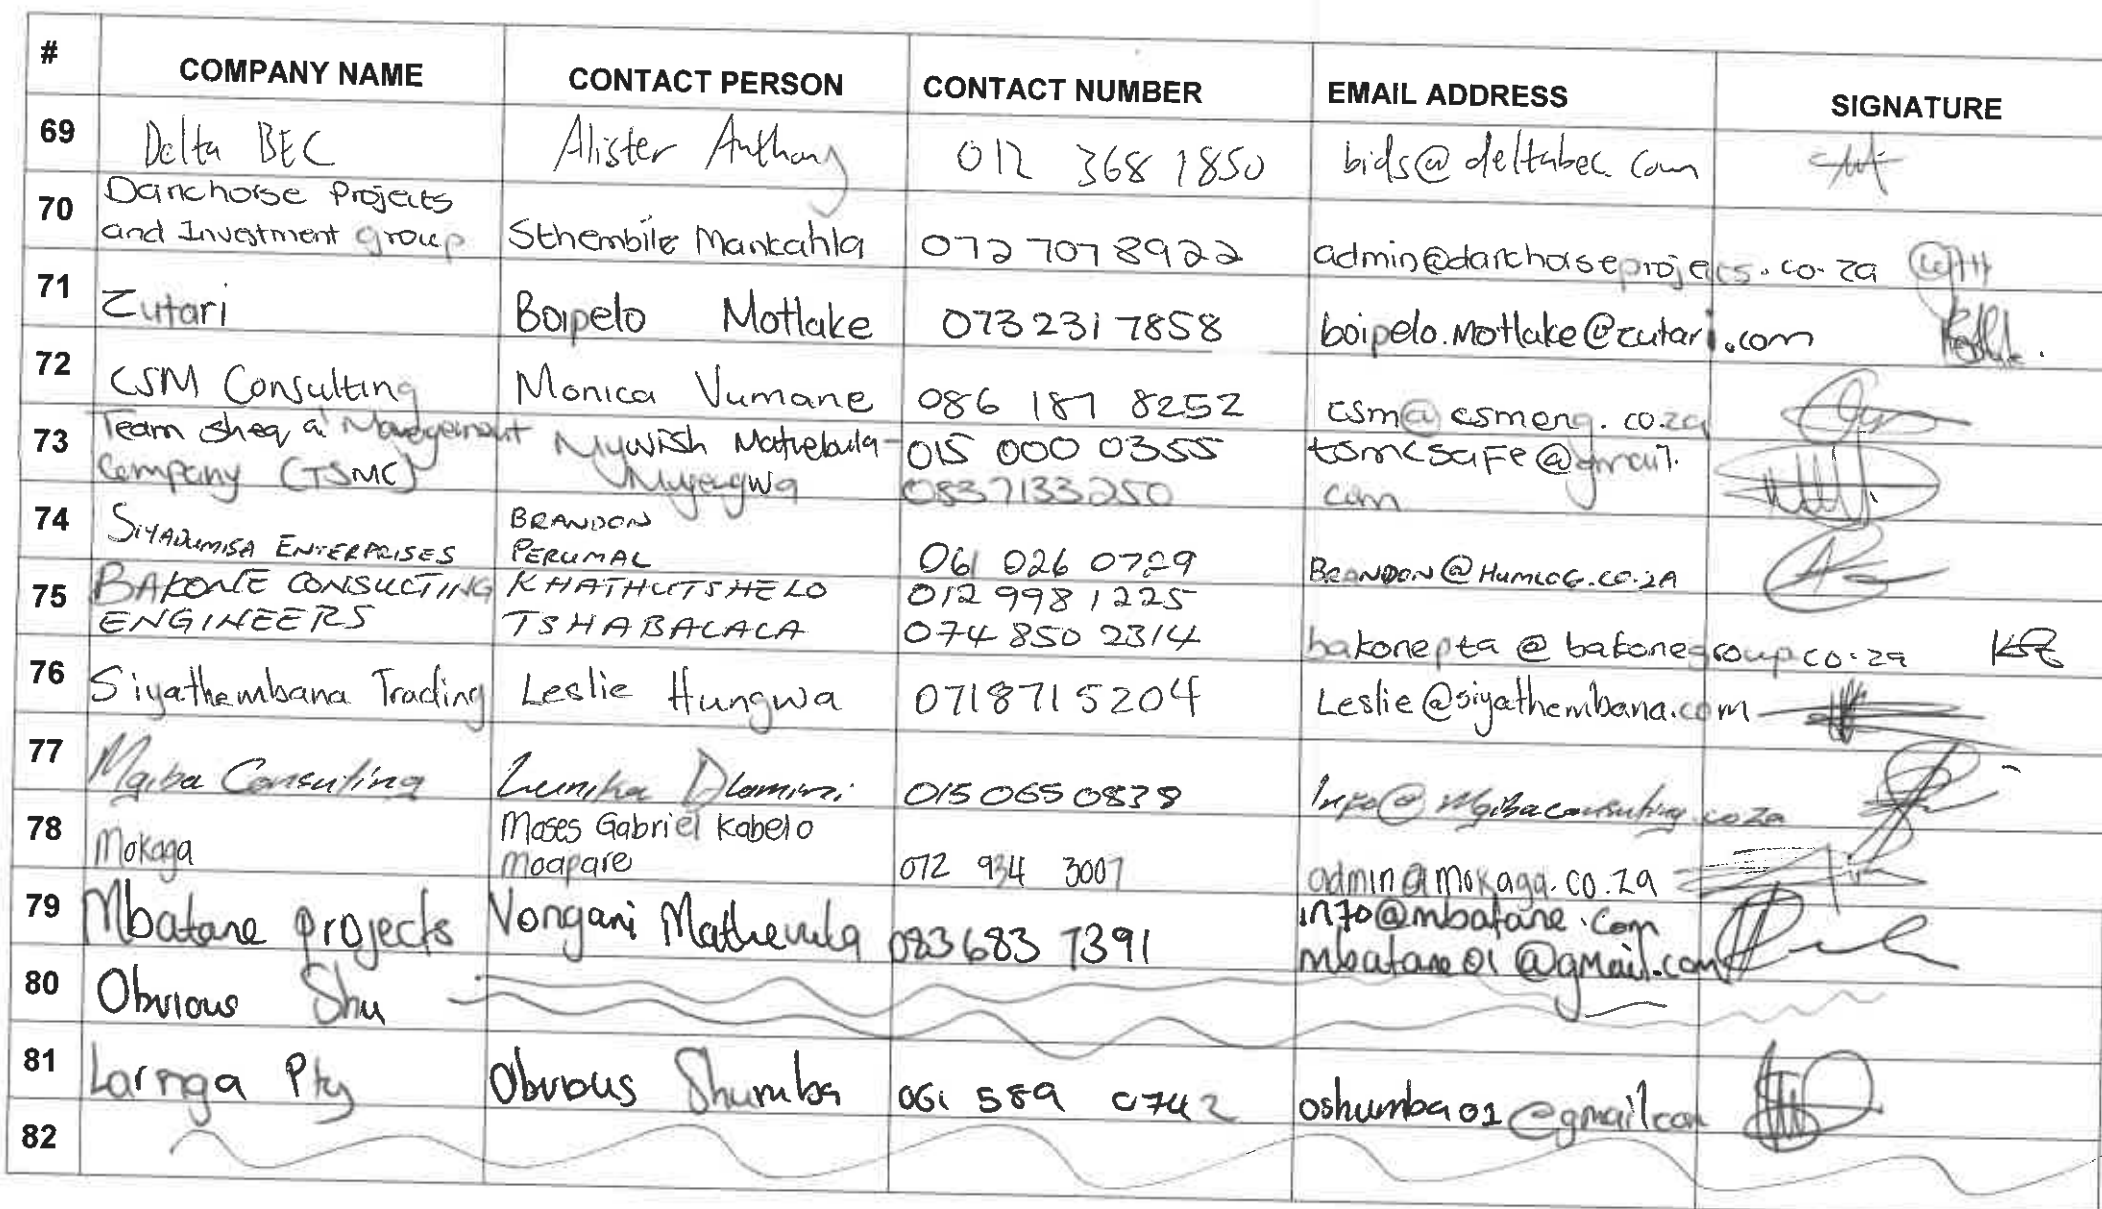 # COMPANY NAME CONTACT PERSON CONTACT NUMBER EMAIL ADDRESS SIGNATURE
69 Delta BEC Alister Anthony 012 368 1850 bids@deltabec.com
70 Darkhorse Projects
and Investment group Sthembile Mankahla 072 707 8922 admin@darkhorseprojects.co.za
71 Zutari Boipelo Motlake 073 231 7858 boipelo.Motlake@zutari.com
72 CSM Consulting Monica Vumane 086 187 8252 csm@csmeng.co.za
73 Team sheq a Management 015 000 0355 tsmcsafe@gmail.
Company (TSMC) 0837133250 com
74 SIYADUMISA ENTERPRISES BRANDON
PERUMAL 061 026 0729 BRANDON@HUMLOG.CO.ZA
75 BAKONE CONSULTING KHATHUTSHELO 012 998 1225
ENGINEERS TSHABALALA 074 850 2314 bakonepta@bakonegroup.co.za
76 Siyathembana Trading Leslie Hungwa 0718715204 Leslie@siyathembana.com
77 Mgiba Consulting Dlamini 015 065 0838 Info@Mgibaconsulting.co.za
78 Mokaga Moses Gabriel Kabelo
Moapare 072 934 3007 admin@mokaga.co.za
79 Mbatane projects Vongani Mathevula 083 683 7391 info@mbatane.com
mbatane01@gmail.com
80 Obvious Shu
81 Pty Obvious Shumba 061 589 0742 oshumba01@gmailcom
82